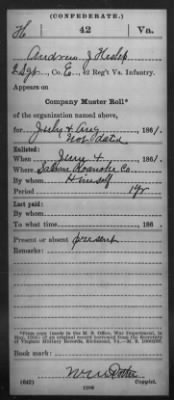 (CONFEDERATE.)
H 42 Va.
Andrew J Heslep
2 Sgt, Co. E, 42 Reg't Va. Infantry.
Appears on
Company Muster Roll*
of the organization named above,
for July & Aug, 1861.
Not dated
Enlisted:
When June 4, 1861.
Where Salem Roanoke Co
By whom Himself
Period 1 yr
Last paid:
By whom
To what time, 186 .
Present or absent present
Remarks:
Book mark:
(642)
Copyist.